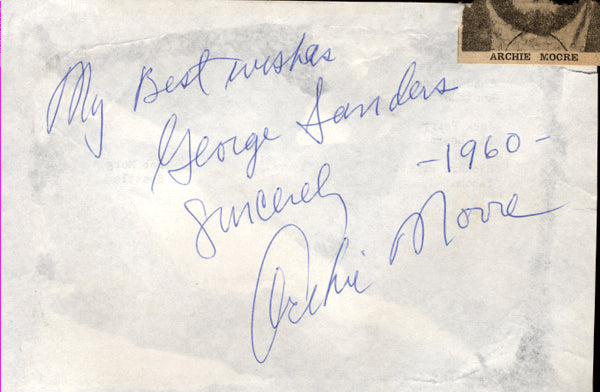 ARCHIE MOORE
My Best wishes
George Sanders
Sincerely -1960-
Archie Moore